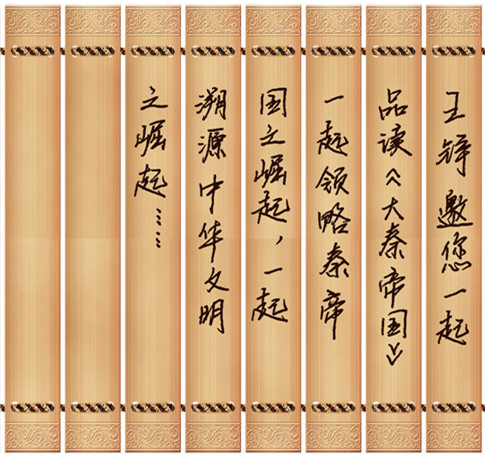 王铮邀您一起
品读《大秦帝国》
一起领略秦帝
国之崛起，一起
溯源中华文明
之崛起……